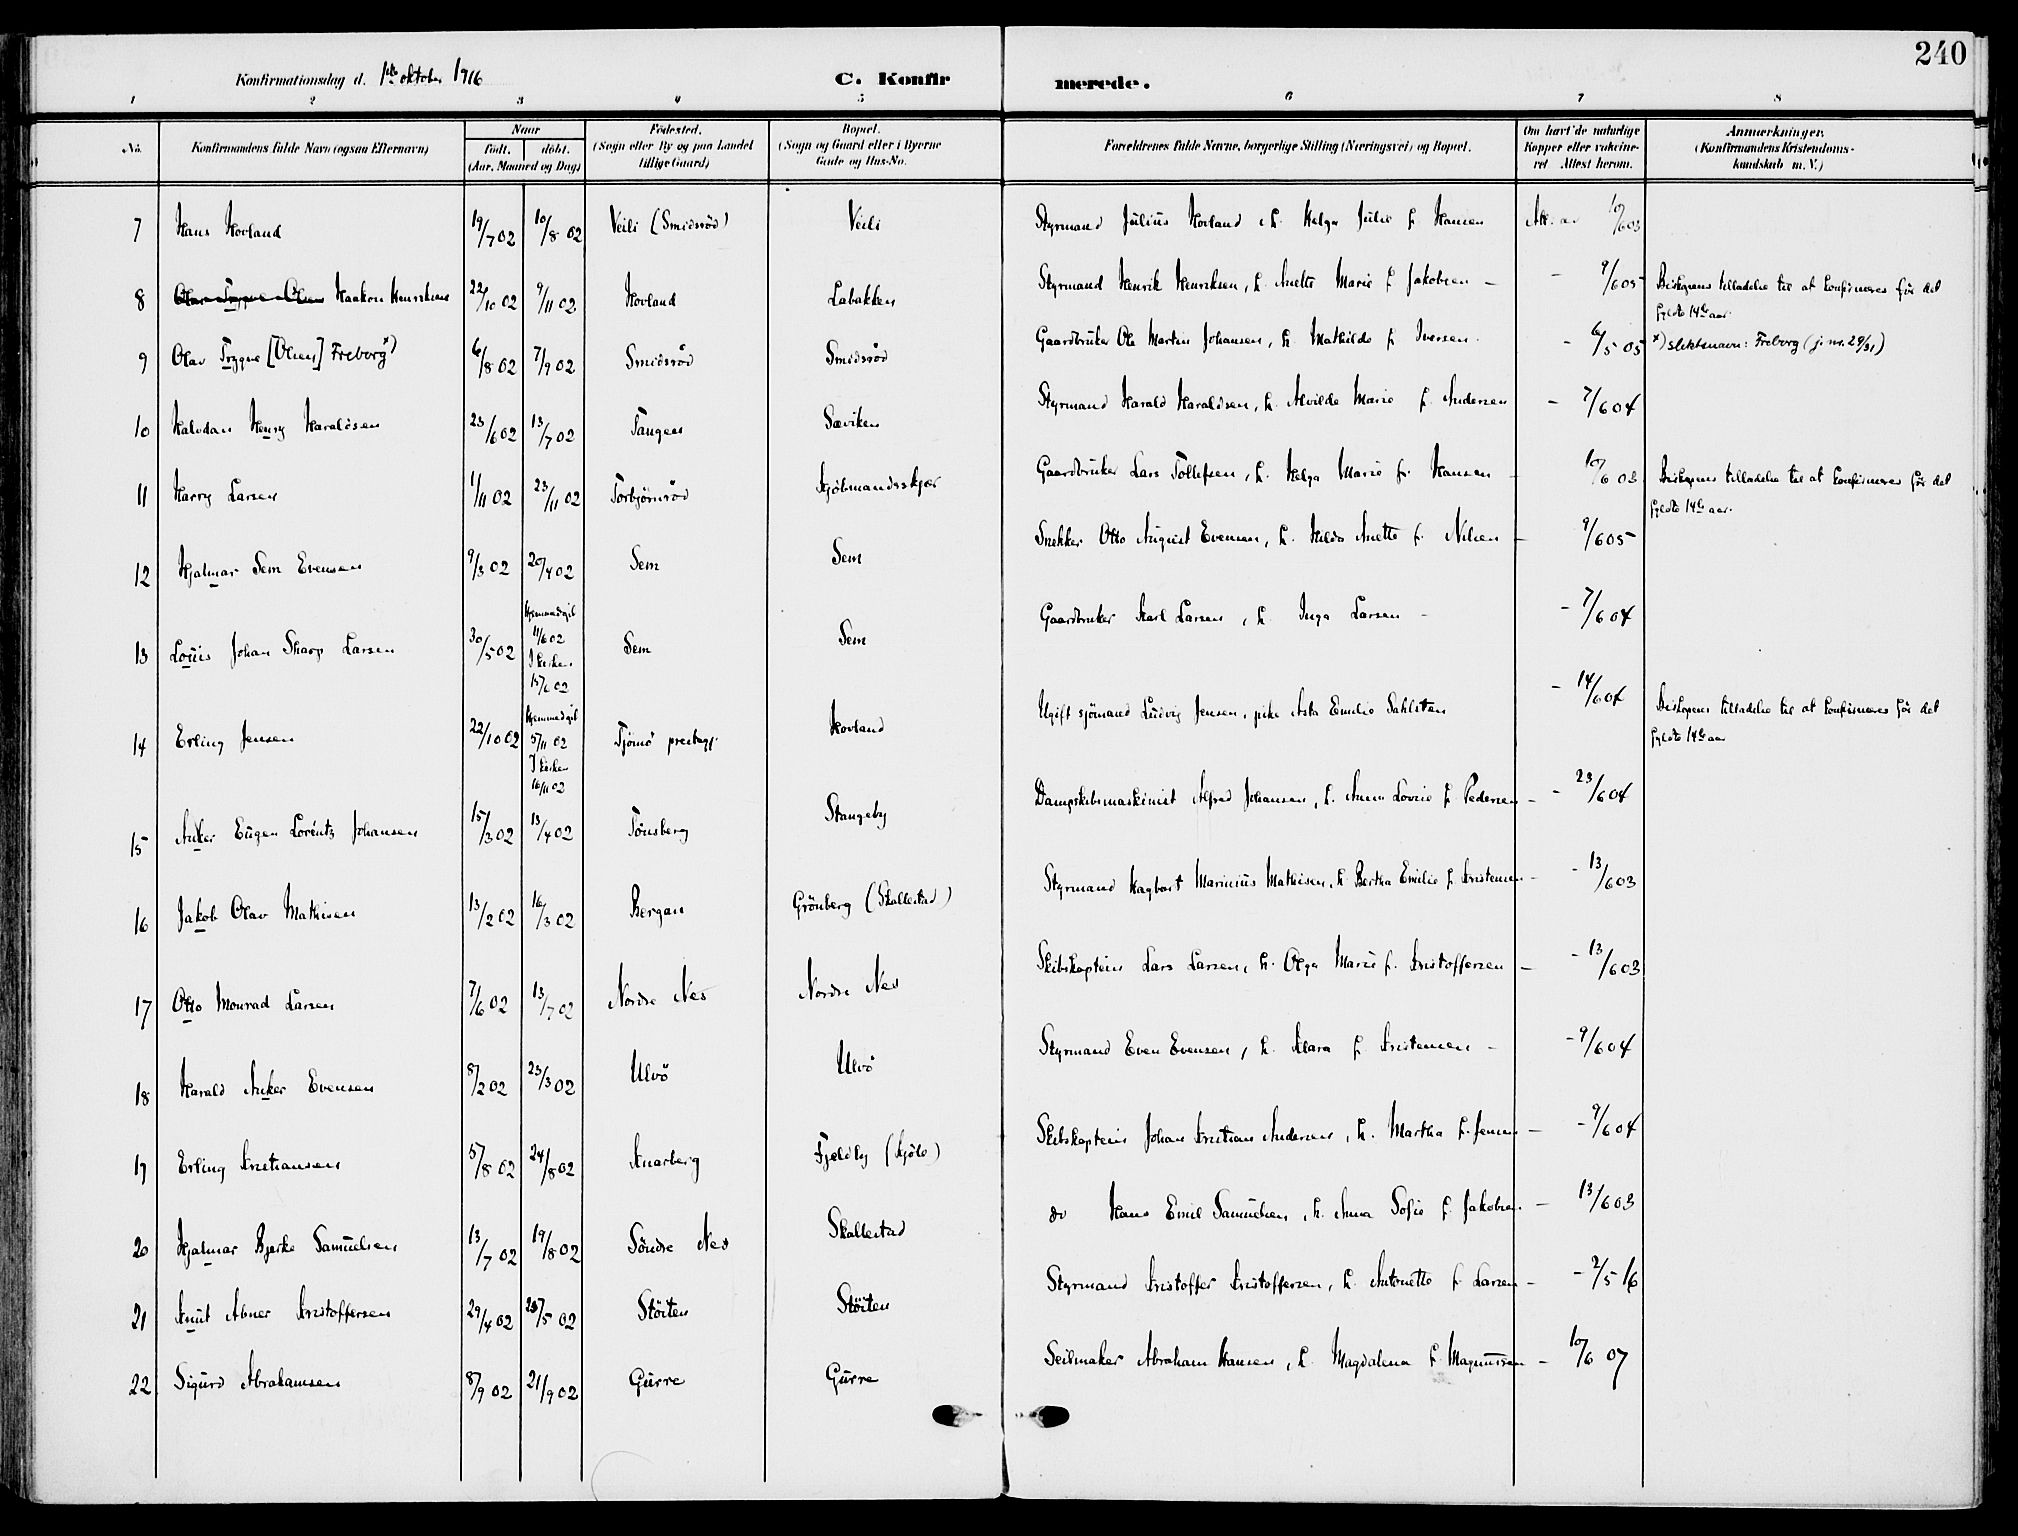 240
Konfirmationsdag d. 1ste oktober 1916
C. Konfirmerede.
1 2 3 4 5 6 7 8
No. Konfirmandens fulde Navn (ogsaa Efternavn) Naar født. døbt. (Aar, Maaned og Dag) Fødested. (Sogn eller By og paa Landet tillige Gaard) Bopæl. (Sogn og Gaard eller i Byerne Gade og Hus-No. Forældrenes fulde Navne, borgerlige Stilling (Næringsvei) og Bopæl. Om havt de naturlige Kopper eller vakcineret Attest herom. Anmærkninger. (Konfirmandens Kristendomskundskab m. V.)
7 Hans Hovland 19/7 02 10/8 02 Veili (Smidsröd) Veili Styrmand Julius Hovland, h. Helga Julie f. Hansen Att. av 10/6 03
8 Olav Trygve Olsen Haakon Henriksen 22/10 02 9/11 02 Hovland Labakken Styrmand Henrik Henriksen, h. Anette Marie f. Jakobsen – – 9/6 05 Biskopens tilladelse til at konfirmeres før det
fyldte 14de aar.
9 Olav Trygve [Olsen] Freberg x) 6/8 02 7/9 02 Smidsröd Smidsröd Gaardbruker Ole Martin Johansen, h. Mathilde f. Iversen. – 6/5 05 x) slektsnavn: Freberg (j. nr. 29/31)
10 Halvdan Henry Haraldsen 23/6 02 13/7 02 Tangen Sæviken Styrmand Harald Haraldsen, h. Alvilde Marie f. Andersen – 7/6 04
11 Harry Larsen 1/11 02 23/11 02 Torbjörnröd Kjöbmandsskjær Gaardbruker Lars Tollefsen, h. Helga Marie f. Hansen – 10/6 03 Biskopens tilladelse til at konfirmeres før det
fyldte 14de aar.
12 Hjalmar Sem Evensen 9/3 02 20/4 02 Sem Sem Snekker Otto August Evensen, h. Hilda Anette f. Nilsen – 9/6 05
13 Louis Johan Skarp Larsen 30/5 02 Hjemmedøbt
11/6 02
I kirken
15/6 02 Sem Sem Gaardbruker Karl Larsen, h. Inga Larsen – – 7/6 04
14 Erling Jensen 22/10 02 Hjemmedøbt
5/11 02
I kirken
16/11 02 Tjömö prestegj. Hovland Ugift sjömand Ludvig Jensen, pike Asta Emilie Dahlsten – 14/6 04 Biskopens tilladelse til at konfirmeres før det
fyldte 14de aar
15 Anker Eugen Lorentz Johansen 15/3 02 13/4 02 Tönsberg Stangeby Dampskibsmaskinist Alfred Johansen, h. Anna Lovise f. Pedersen – – 23/6 04
16 Jakob Olav Mathisen 13/2 02 16/3 02 Bergan Grönberg (Skallestad) Styrmand Hagbart Marinius Mathisen, h. Bertha Emilie f. Kristensen – – 13/6 03
17 Otto Monrad Larsen 7/6 02 13/7 02 Nordre Nes Nordre Nes Skibskaptein Lars Larsen, h. Olga Marie f. Kristoffersen – – 13/6 03
18 Harald Anker Evensen 8/2 02 23/3 02 Ulvö Ulvö Styrmand Even Evensen, h. Klara f. Kristensen – – 9/6 04
19 Erling Kristiansen 5/8 02 24/8 02 Knarberg Fjeldby (Kjöle) Skibskaptein Johan Kristian Andersen, h. Martha f. Jensen – – 9/6 04
20 Hjalmar Bjerke Samuelsen 13/7 02 19/8 02 Söndre Nes Skallestad do Hans Emil Samuelsen, h. Anna Sofie f. Jakobsen – 13/6 03
21 Knut Abner Kristoffersen 29/4 02 25/5 02 Störten Störten Styrmand Kristoffer Kristoffersen, h. Antonette f. Larsen – – 2/5 16
22 Sigurd Abrahamsen 8/9 02 21/9 02 Gurre Gurre Seilmaker Abraham Hansen, h. Magdalena f. Magnussen – 10/6 07